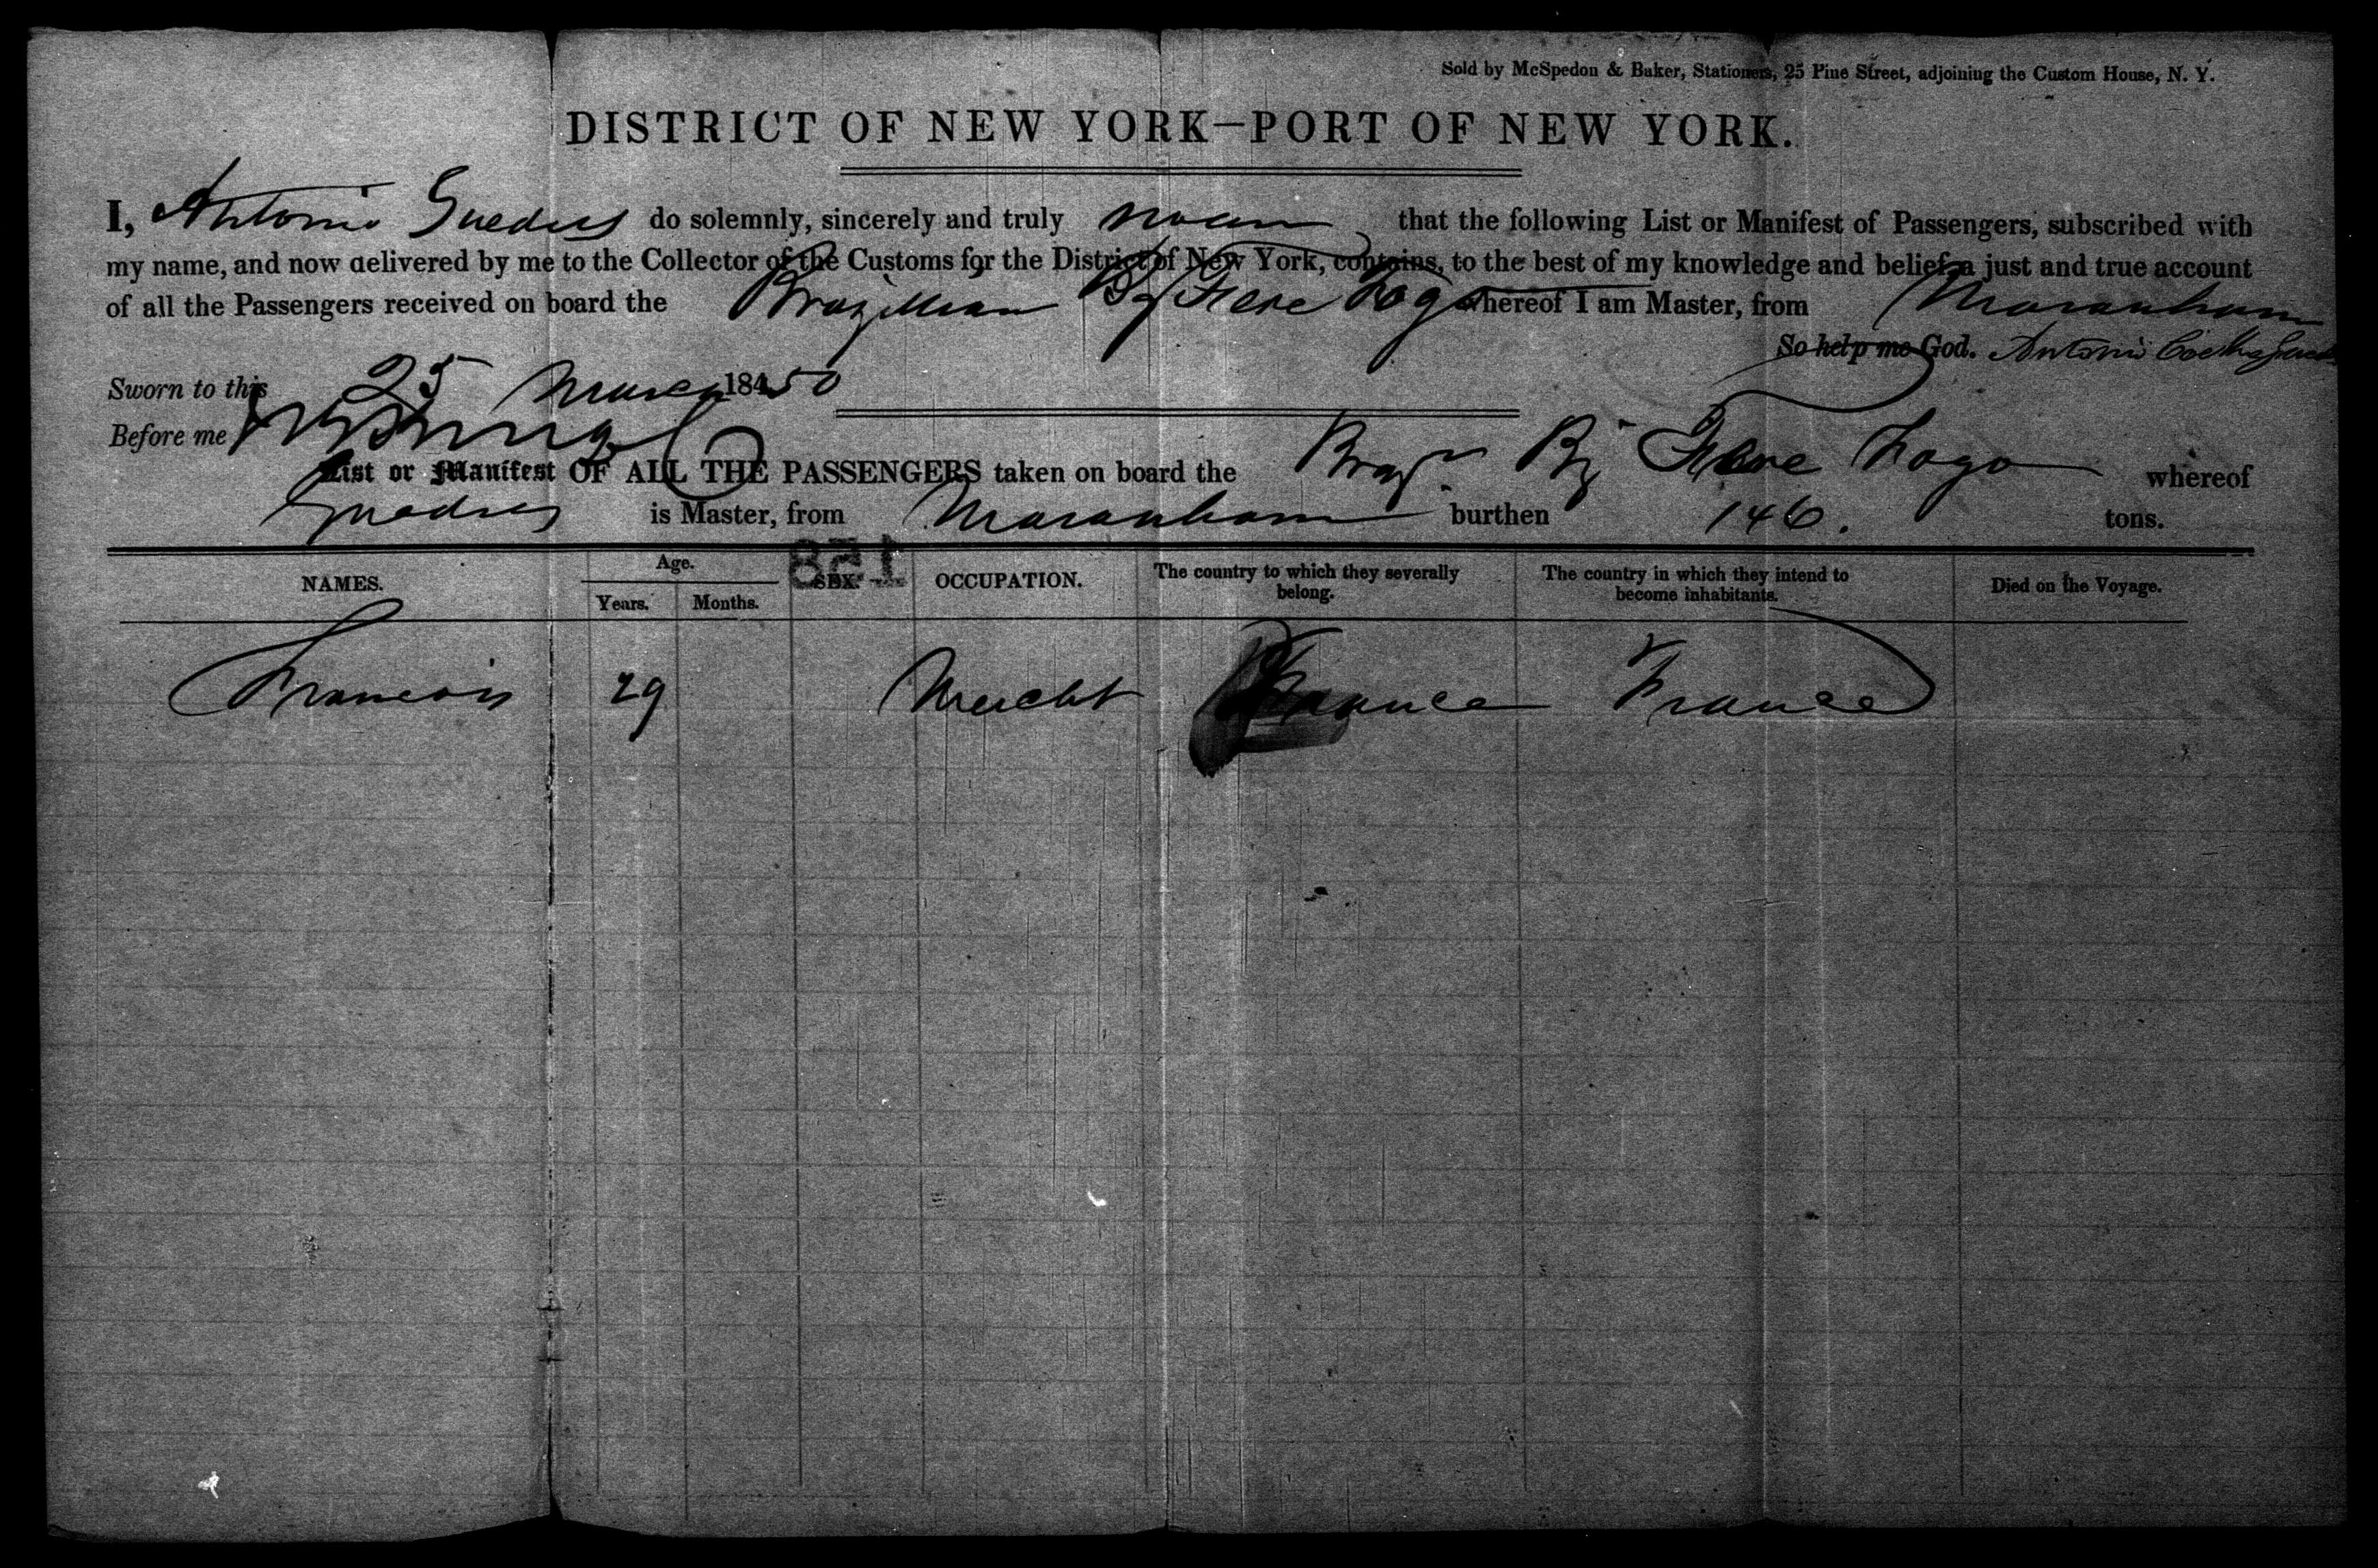 Sold by McSpedon & Baker, Stationers, 25 Pine Street, adjoining the Custom House, N. Y.
DISTRICT OF NEW YORK—PORT OF NEW YORK.
I, Antonio Guedes do solemnly, sincerely and truly that the following List or Manifest of Passengers, subscribed with
my name, and now delivered by me to the Collector of the Customs for the District of New York, contains, to the best of my knowledge and belief, a just and true account
of all the Passengers received on board the Brazillian Bg whereof I am Master, from Maranham
So help me God. Antonio
Sworn to this 25 March 184 50
Before me
List or Manifest OF ALL THE PASSENGERS taken on board the Brazn Bg whereof
is Master, from Maranham burthen 146. tons.
NAMES. Age. Years. Months. SEX. OCCUPATION. The country to which they severally belong. The country in which they intend to become inhabitants. Died on the Voyage.
158
Francois 29 Mercht France France